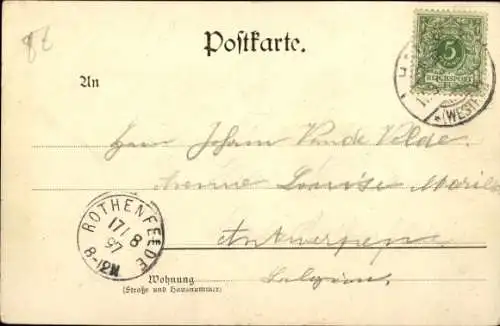 8
Postkarte.
5
REICHSPOST
(WESTF.
An
Herrn Johann Van de Velde.
Avenue Louise Marie
ROTHENFELDE
17/8
97
8-12N
Antwerpen
Belgien.
Wohnung
(Straße und Hausnummer)